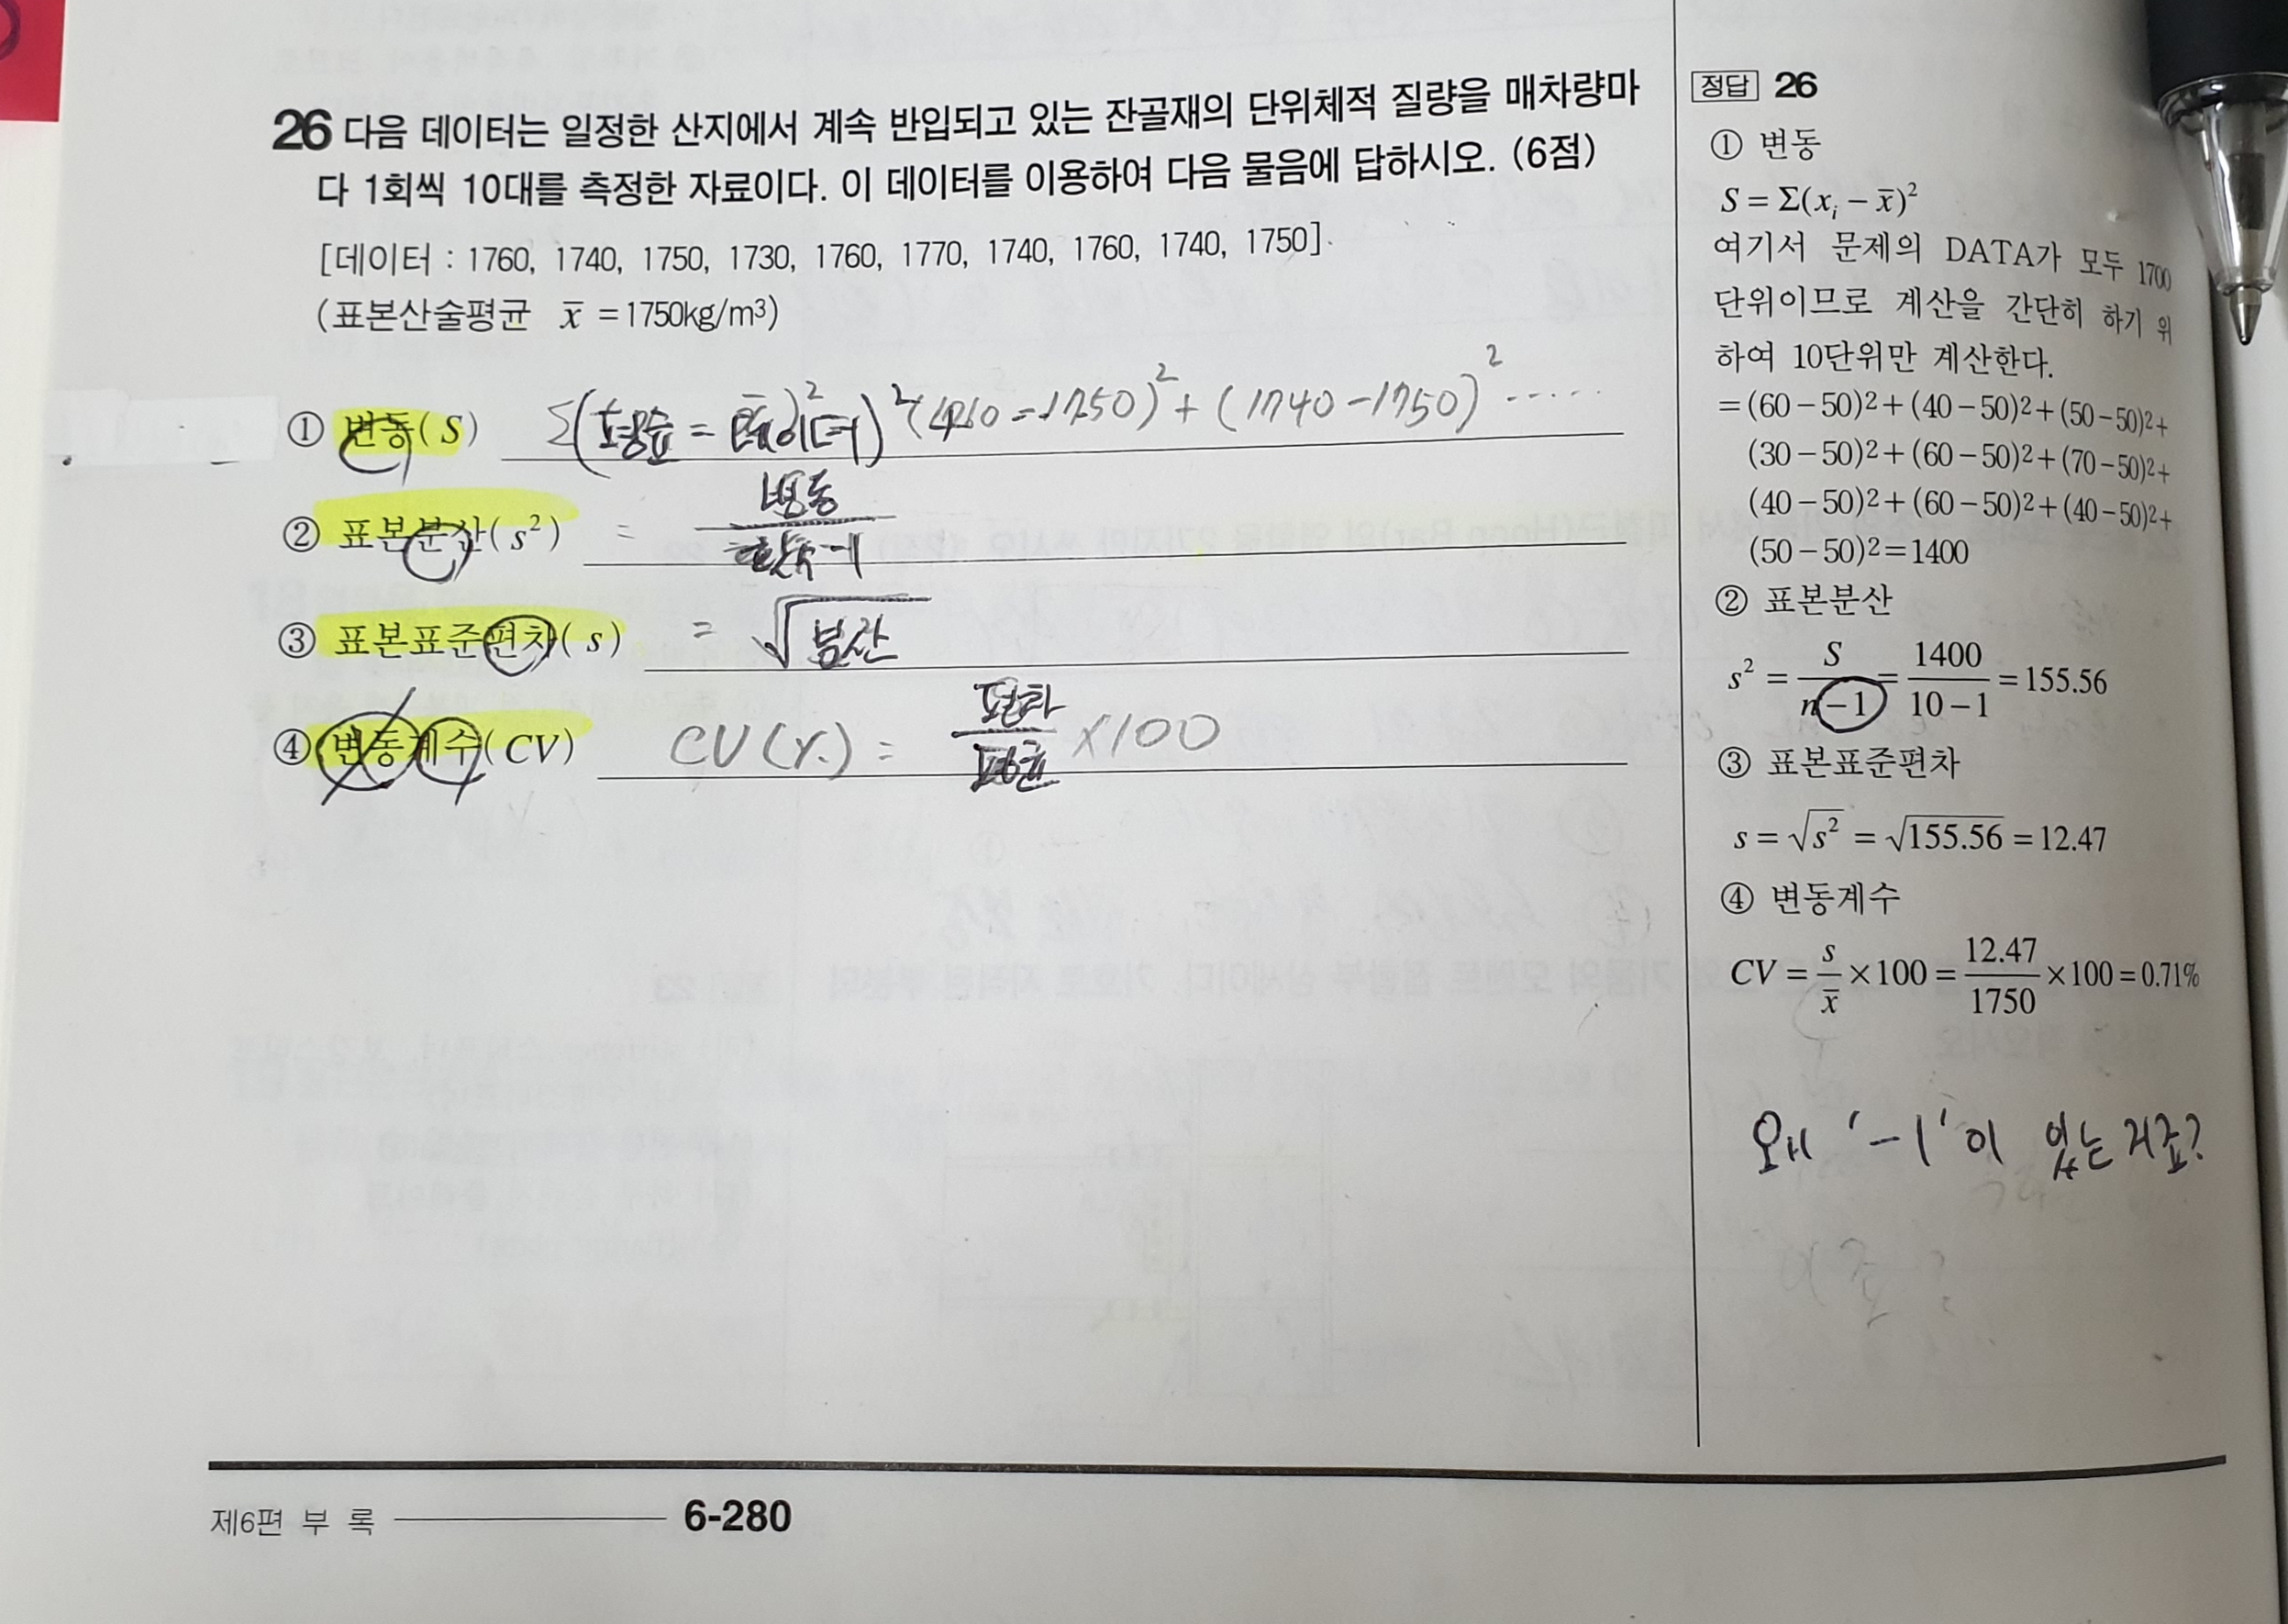 26 다음 데이터는 일정한 산지에서 계속 반입되고 있는 잔골재의 단위체적 질량을 매차량마
다 1회씩 10대를 측정한 자료이다. 이 데이터를 이용하여 다음 물음에 답하시오. (6점)
[데이터 : 1760, 1740, 1750, 1730, 1760, 1770, 1740, 1760, 1740, 1750]
(표본산술평균 x̄ = 1750kg/m³)
① 변동(S) (1740-1750)² .....
② 표본분산(s²) = 변동
③ 표본표준편차(s) = √분산
④ 변동계수(CV) CV(%) = 편차/평균 ×100
정답 26
① 변동
S = Σ(xᵢ - x̄)²
여기서 문제의 DATA가 모두 1700
단위이므로 계산을 간단히 하기 위
하여 10단위만 계산한다.
= (60-50)2+(40-50)2+(50-50)2+
(30-50)2+(60-50)2+(70-50)2+
(40-50)2+(60-50)2+(40-50)2+
(50-50)2=1400
② 표본분산
s² = S/(n-1) = 1400/(10-1) = 155.56
③ 표본표준편차
s = √s² = √155.56 = 12.47
④ 변동계수
CV = s/x̄ ×100 = 12.47/1750 ×100 = 0.71%
왜 '-1'이 있는거죠?
제6편 부 록 6-280